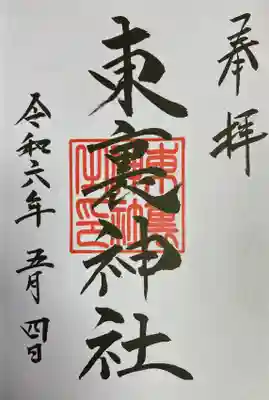 奉拝
東裏神社
令和六年 五月 四日